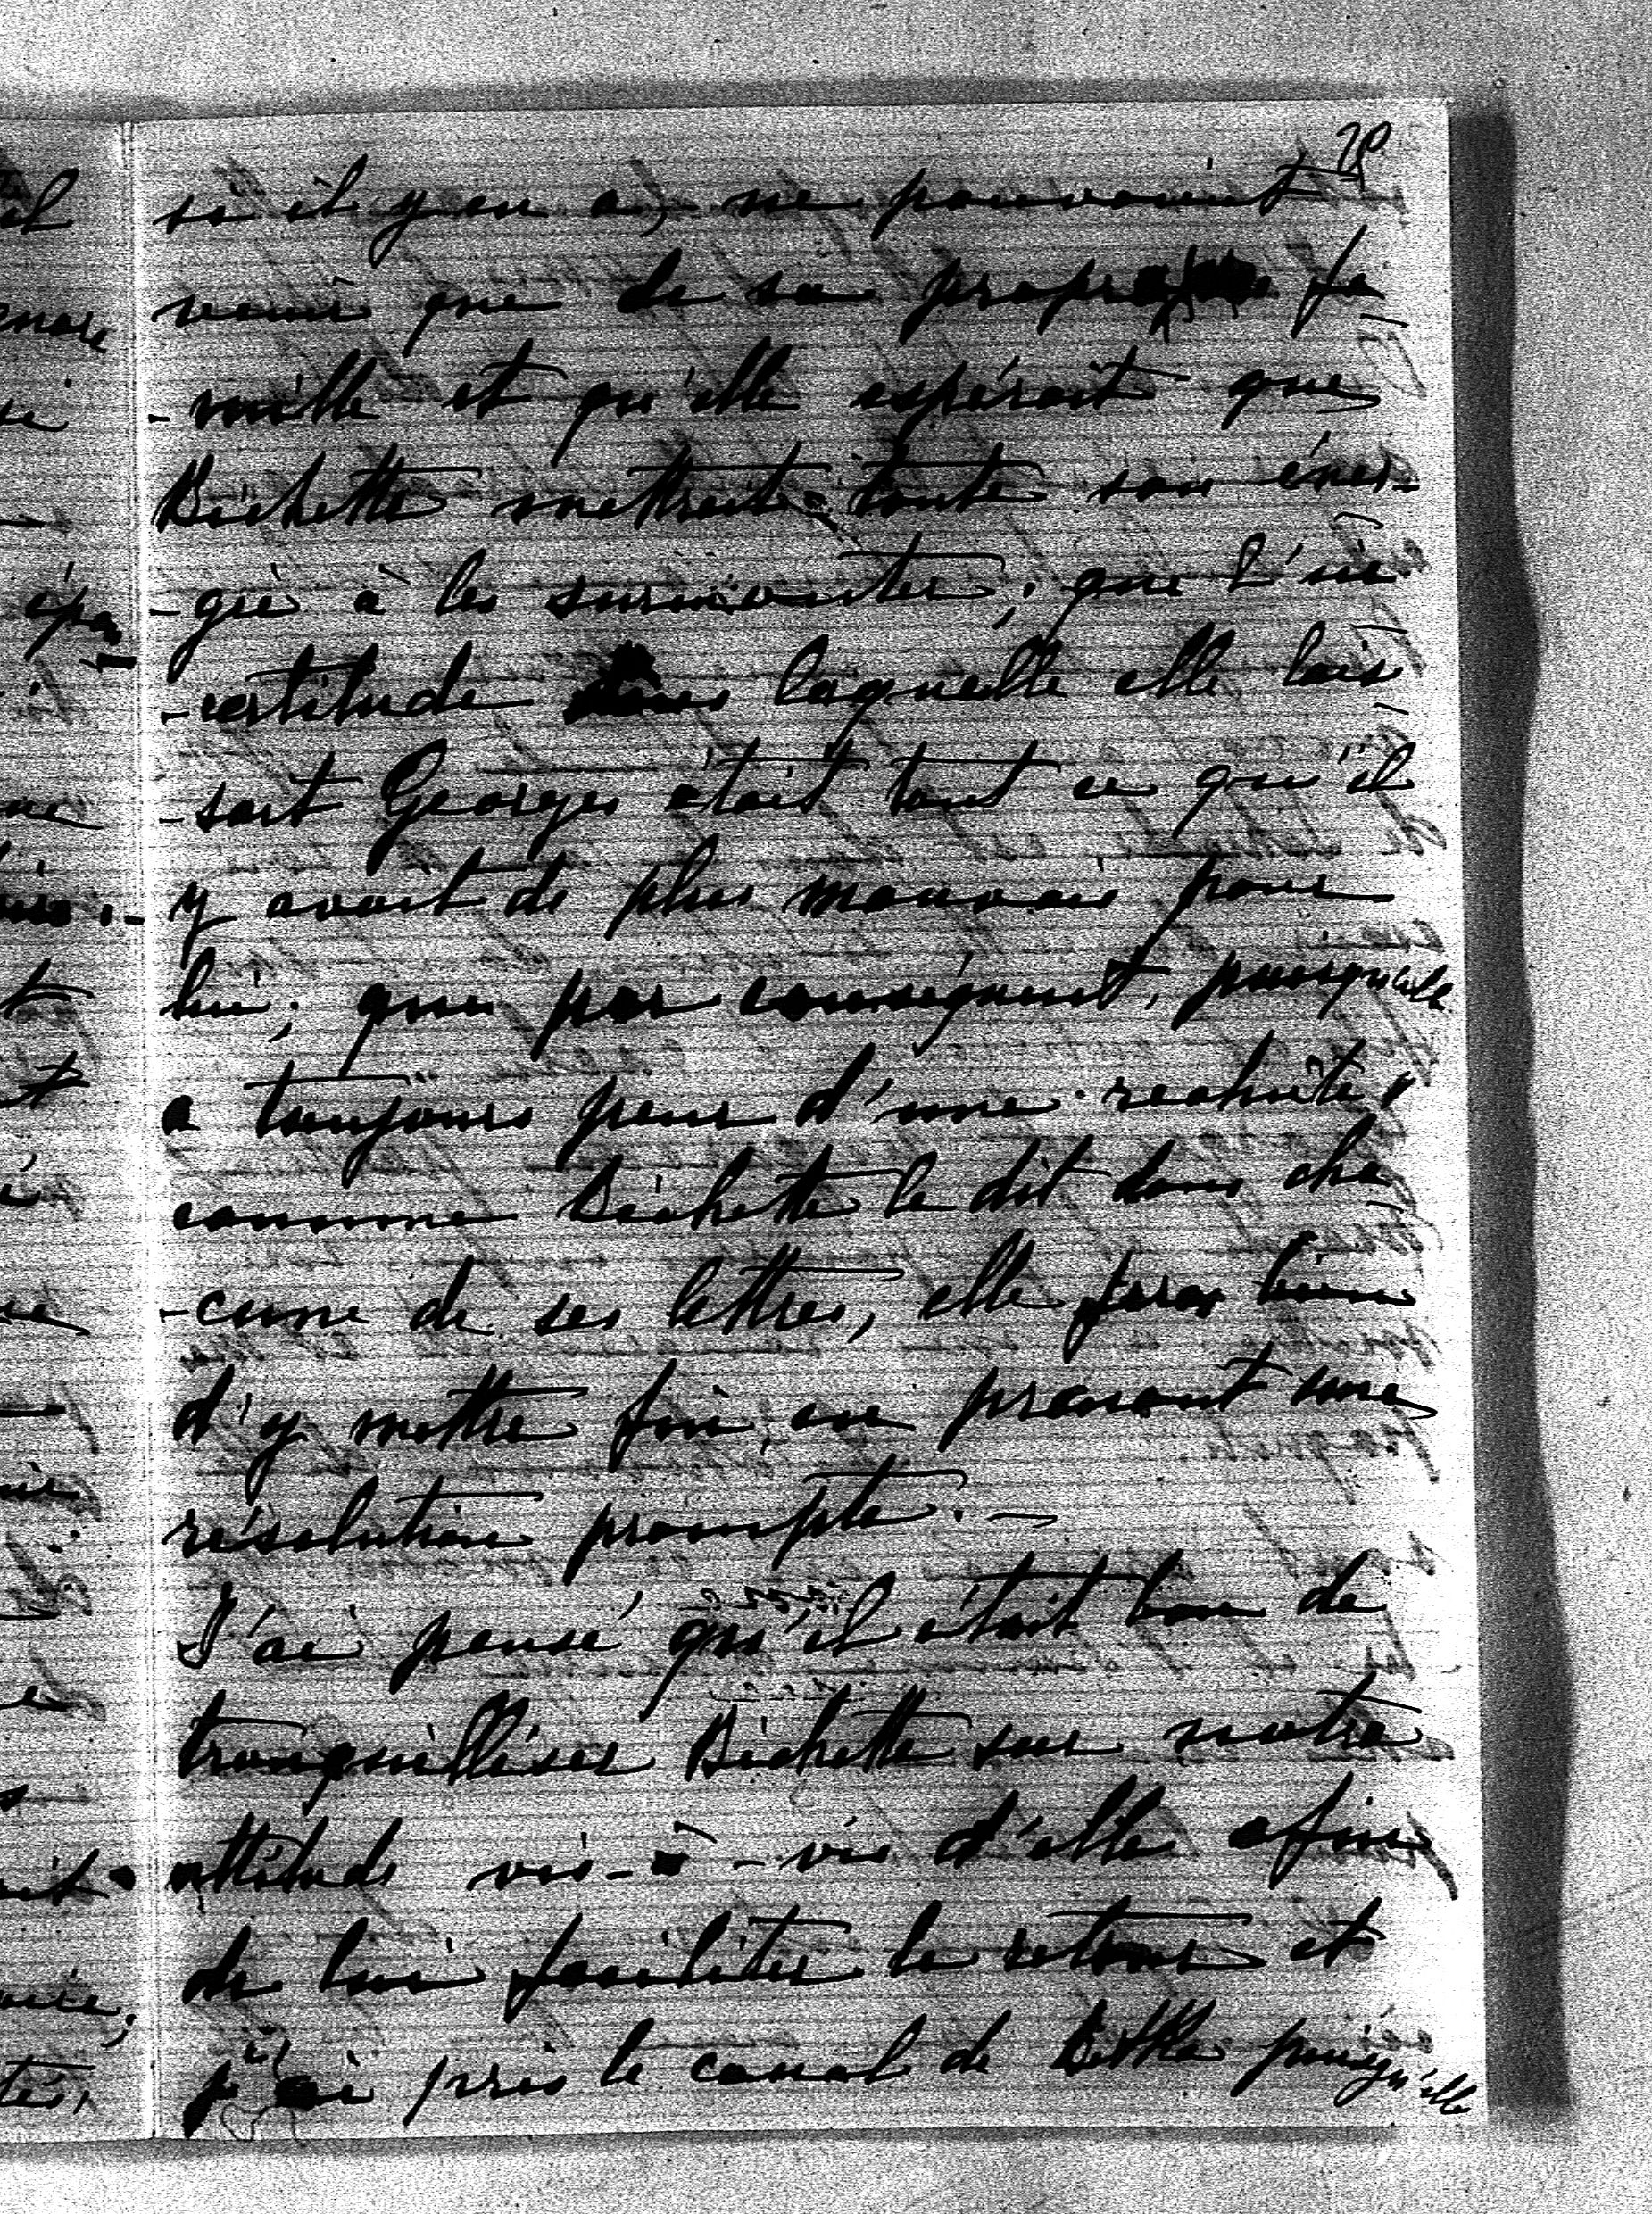 si il y en a, ne pouvaient
venir que de sa propre fa
-mille et qu'elle espérait que
Bichette mettrait toute son éner-
-gie à les surmonter; que l'in
-certitude dans laquelle elle lais
-sait Georges était tout ce qu'il
y avait de plus mauvais pour
lui; que par conséquent, puisqu'elle
a toujours peur d'une rechûte,
comme Bichette le dit dans cha
-cune de ses lettres, elle fera bien
d'y mettre fin, en prenant une
résolution prompte. —
J'ai pensé qu'il était bon de
tranquilliser Bichette sur notre
attitude vis-à-vis d'elle afin
de lui faciliter le retour et
j'ai pris le canal de puisqu'elle